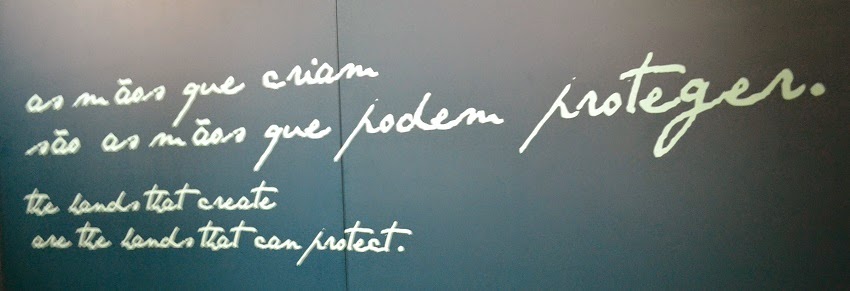 as mãos que criam
são as mãos que podem proteger.
the hands that create
are the hands that can protect.